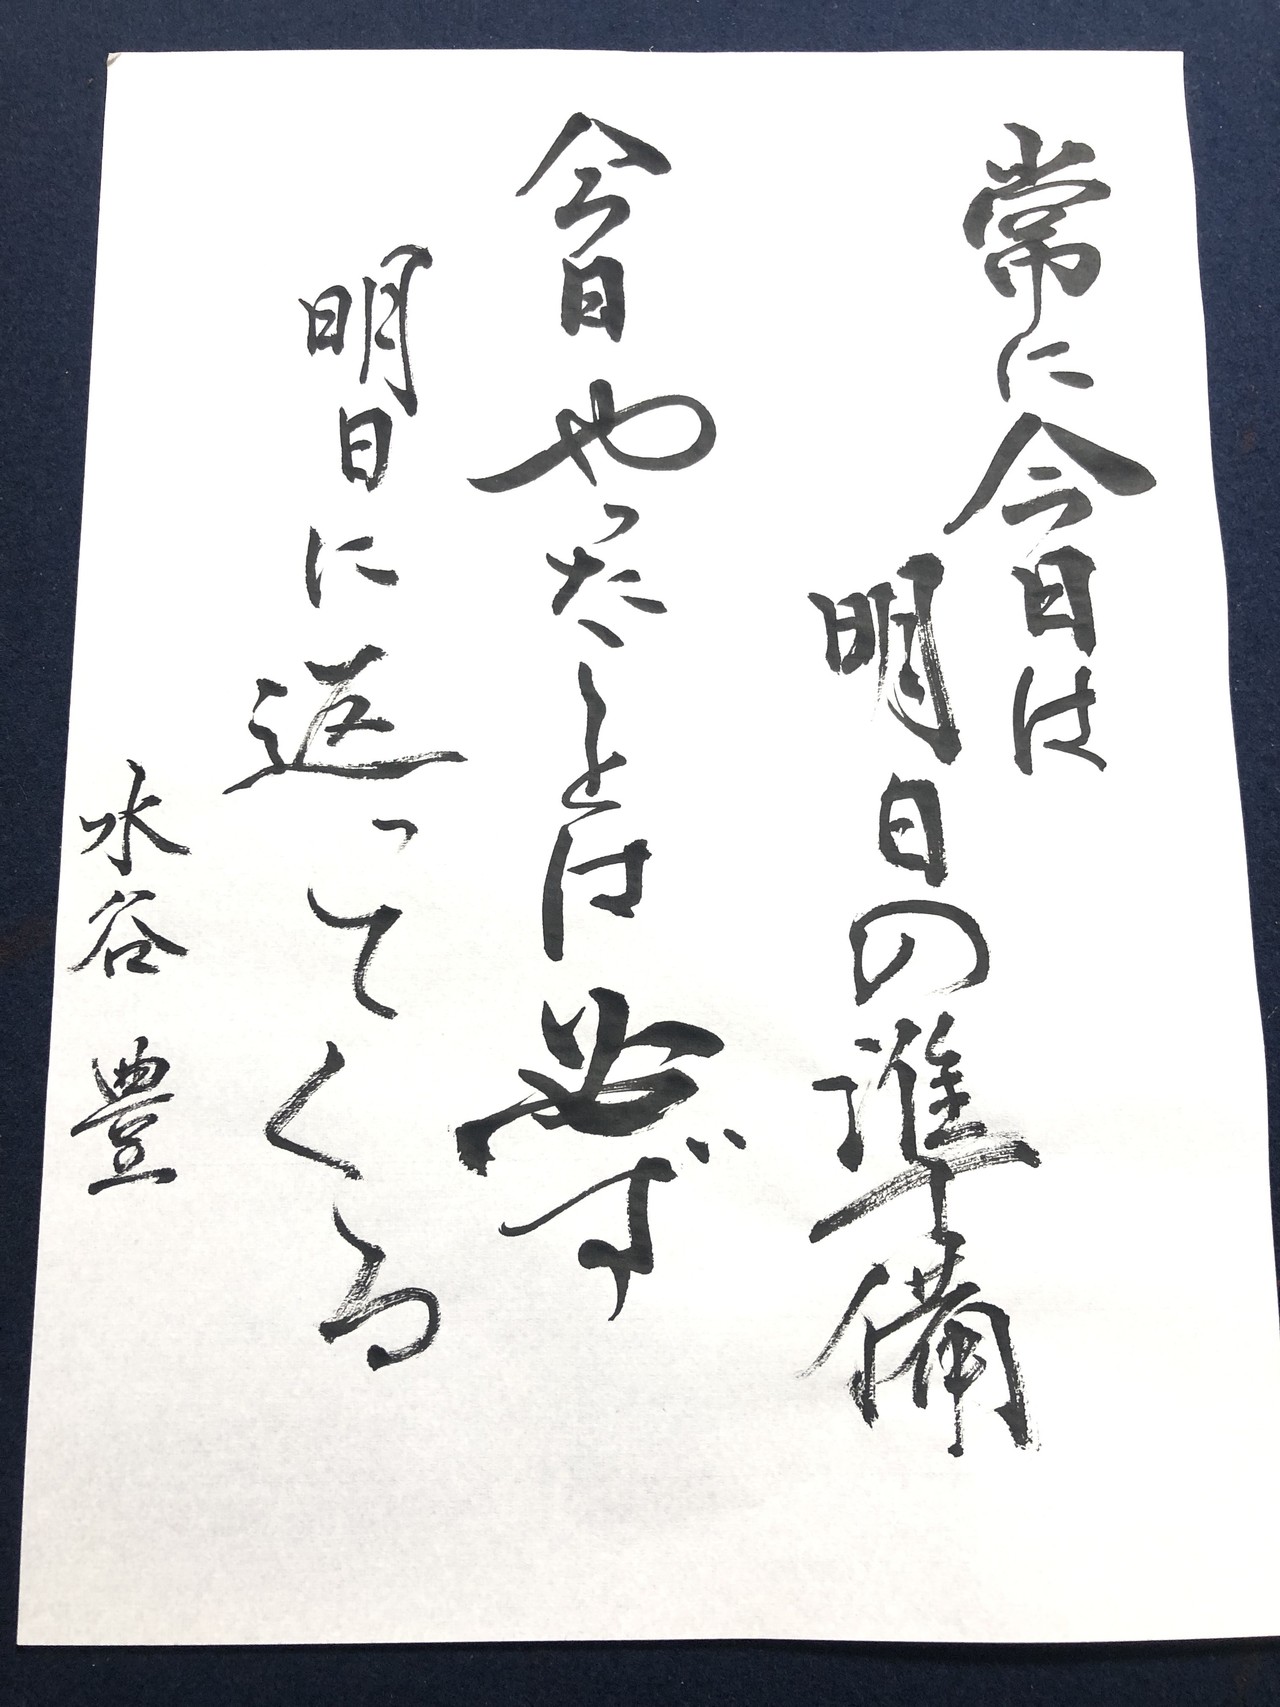 常に今日は
明日の準備
今日やったことは必ず
明日に返ってくる
水谷豊